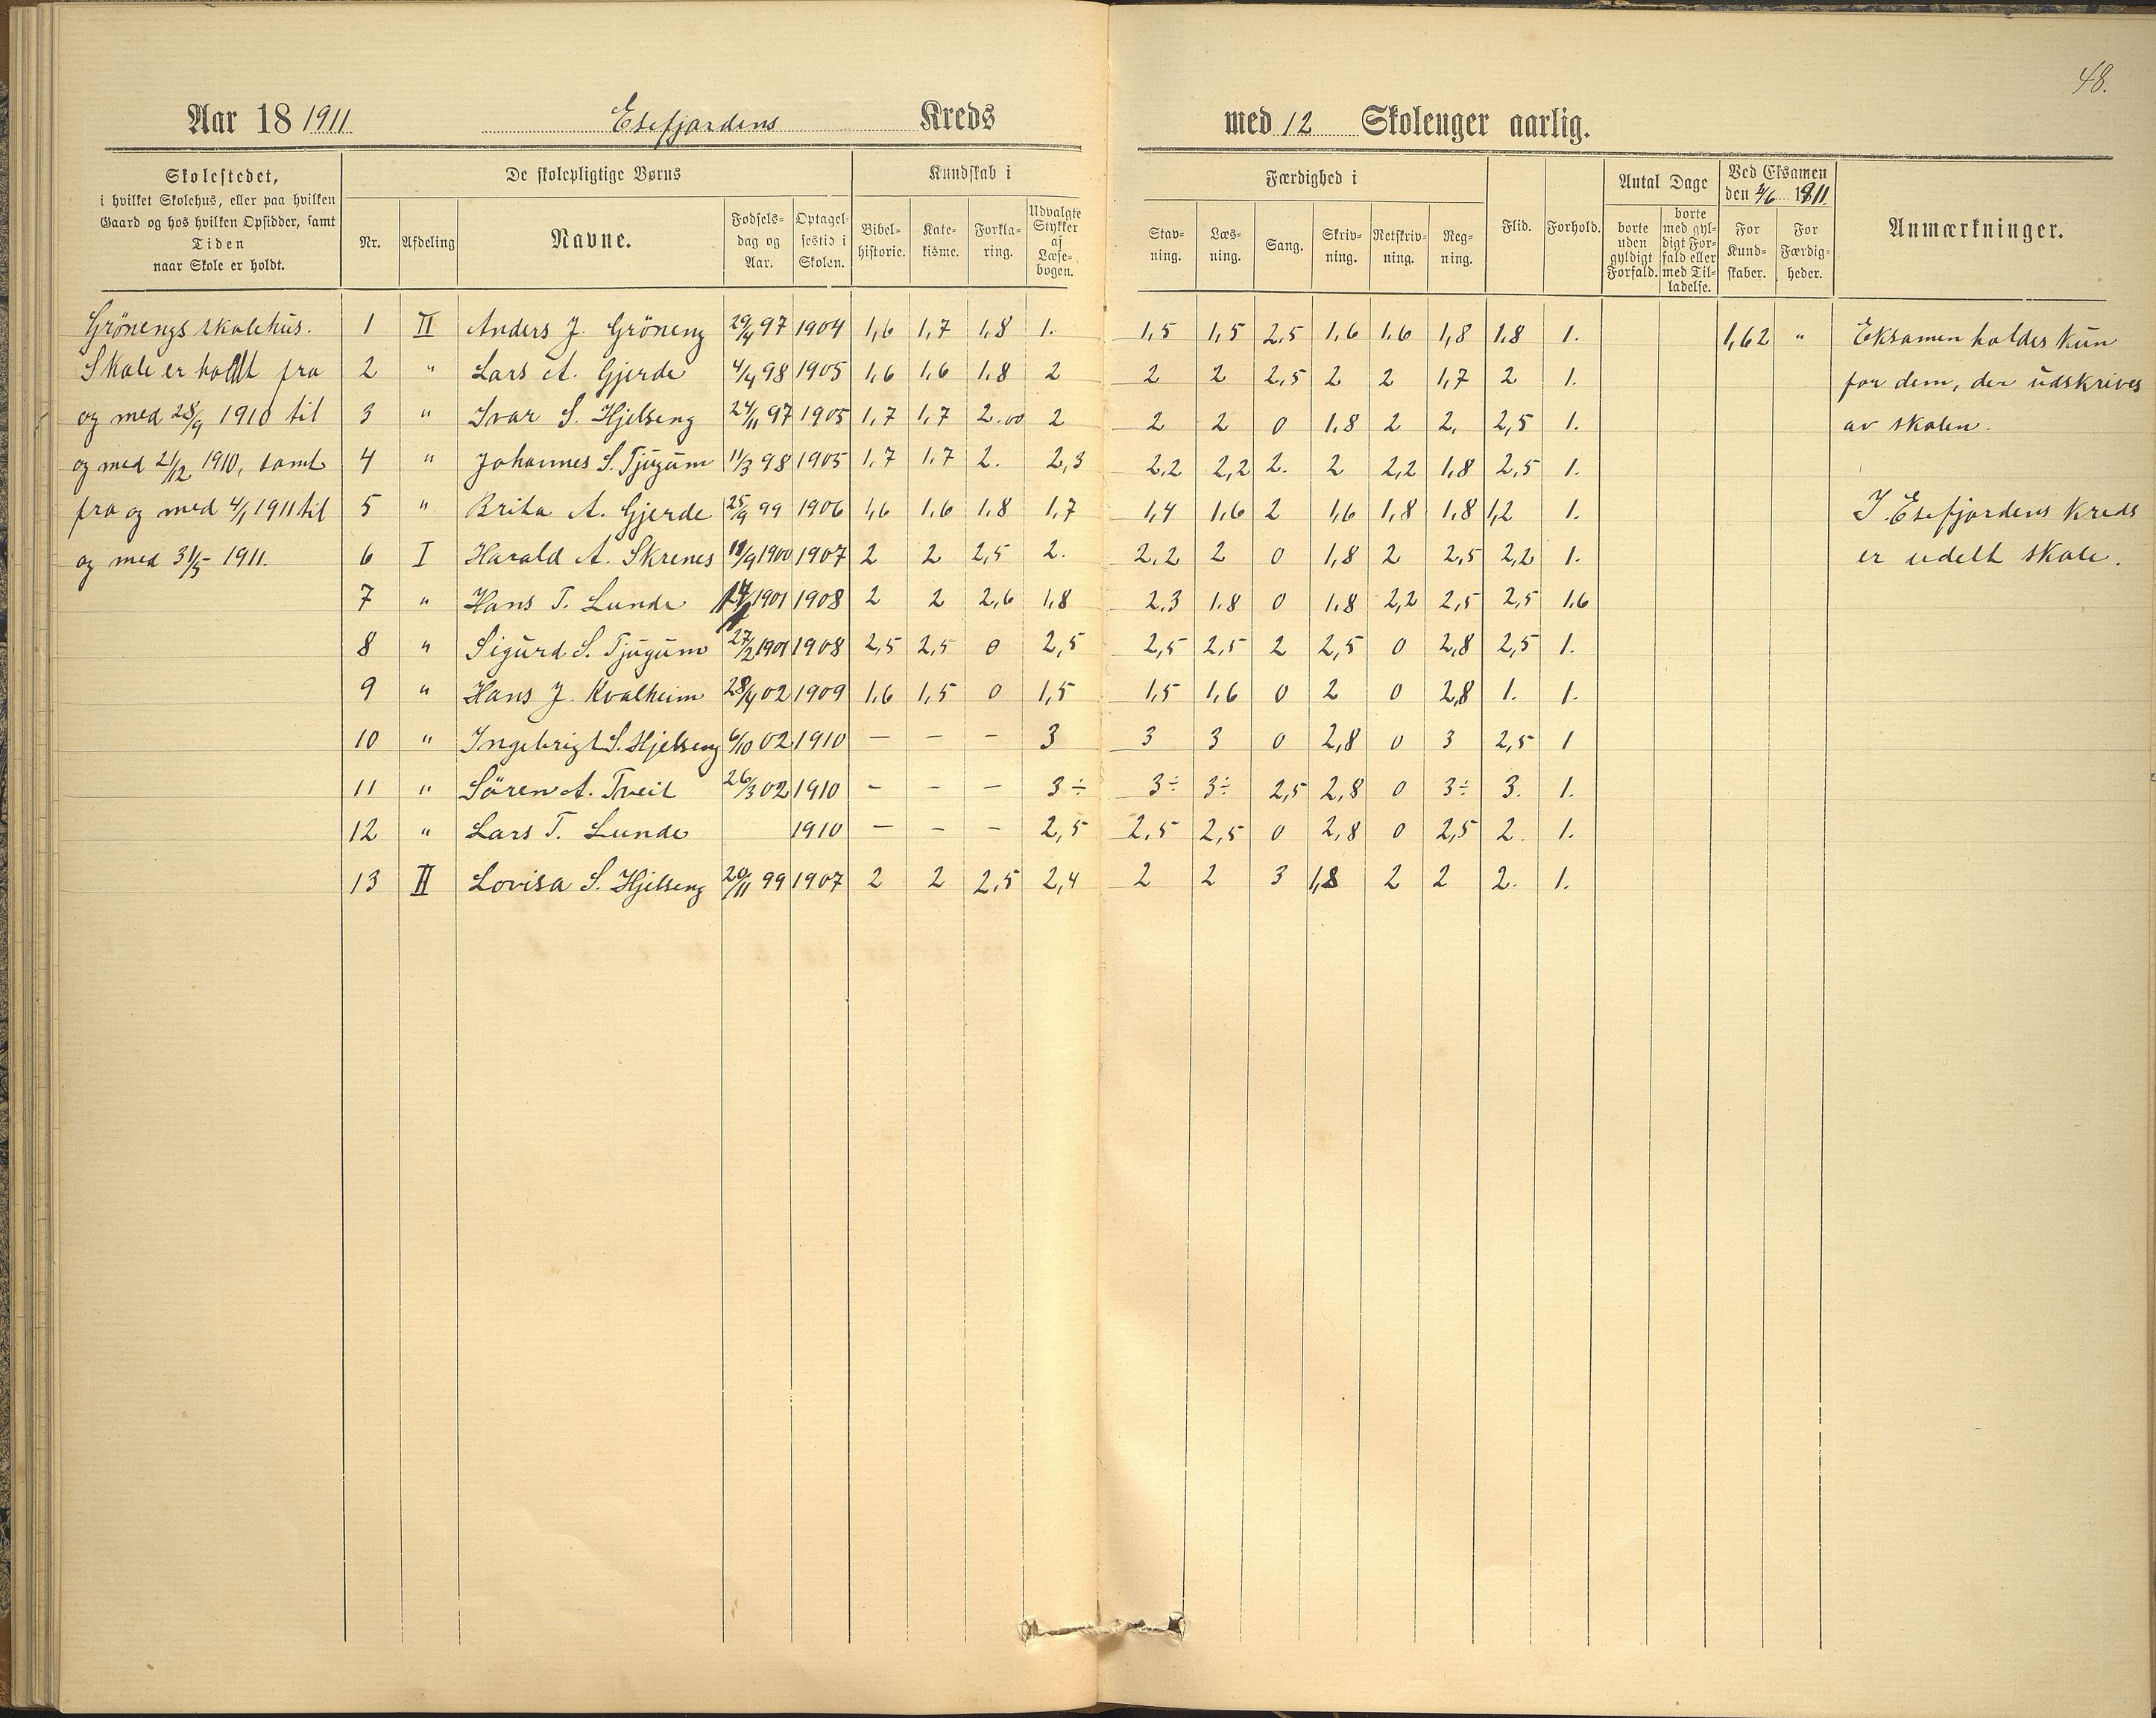 48.
Aar 18 1911 Esefjordens Kreds med 12 Skoleuger aarlig.
Skolestedet,
i hvilket Skolehus, eller paa hvilken
Gaard og hos hvilken Opsidder, samt
Tiden
naar Skole er holdt.
De skolepligtige Børns
Nr.
Afdeling
Navne.
Fødsels-
dag og
Aar.
Optagel-
sestid i
Skolen.
Kundskab i
Bibel-
historie.
Kate-
kisme.
Forkla-
ring.
Udvalgte
Stykker
af
Læse-
bogen.
Færdighed i
Stav-
ning.
Læs-
ning.
Sang.
Skriv-
ning.
Retskriv-
ning.
Reg-
ning.
Flid.
Forhold.
Antal Dage
borte
uden
gyldigt
Forfald.
borte
med gyl-
digt For-
fald eller
med Til-
ladelse.
Ved Eksamen
den 2/6 1911.
For
Kund-
skaber.
For
Færdig-
heder.
Anmærkninger.
Grönengs skolehus.
Skole er holdt fra
og med 28/9 1910 til
og med 21/12 1910, samt
fra og med 4/1 1911 til
og med 31/5 1911.
1 II Anders J. Gröneng 29/4 97 1904 1,6 1,7 1,8 1. 1,5 1,5 2,5 1,6 1,6 1,8 1,8 1. 1,62 "
2 " Lars A. Gjerde 4/4 98 1905 1,6 1,6 1,8 2 2 2 2,5 2 2 1,7 2 1.
3 " Ivar S. Hjelseng 24/11 97 1905 1,7 1,7 2.00 2 2 2 0 1,8 2 2. 2,5 1.
4 " Johannes S. Tjugum 11/3 98 1905 1,7 1,7 2. 2,3 2,2 2,2 2. 2 2,2 1,8 2,5 1.
5 " Brita A. Gjerde 25/9 99 1906 1,6 1,6 1,8 1,7 1,4 1,6 2 1,6 1,8 1,8 1,2 1.
6 I Harald A. Skrenes 11/9 1900 1907 2 2 2,5 2. 2,2 2 0 1,8 2 2,5 2,2 1.
7 " Hans T. Lunde 1901 1908 2 2 2,6 1,8 2,3 1,8 0 1,8 2,2 2,5 2,5 1,6
8 " Sigurd S. Tjugum 27/2 1901 1908 2,5 2,5 0 2,5 2,5 2,5 2 2,5 0 2,8 2,5 1.
9 " Hans J. Kvalheim 28/4 02 1909 1,6 1,5 0 1,5 1,5 1,6 0 2 0 2,8 1. 1.
10 " Ingebrigt S. Hjelseng 6/10 02 1910 — — — 3 3 3 0 2,8 0 3 2,5 1
11 " Sören A. Tveit 26/3 02 1910 — — — 3÷ 3÷ 3÷ 2,5 2,8 0 3÷ 3. 1.
12 " Lars T. Lunde 1910 — — — 2,5 2,5 2,5 0 2,8 0 2,5 2. 1.
13 II Lovisa S. Hjelseng 20/11 99 1907 2 2 2,5 2,4 2 2 3 1,8 2 2 2. 1.
Eksamen holdes kun
for dem, der udskrives
av skolen.
I Esefjordens kreds
er udelt skole.